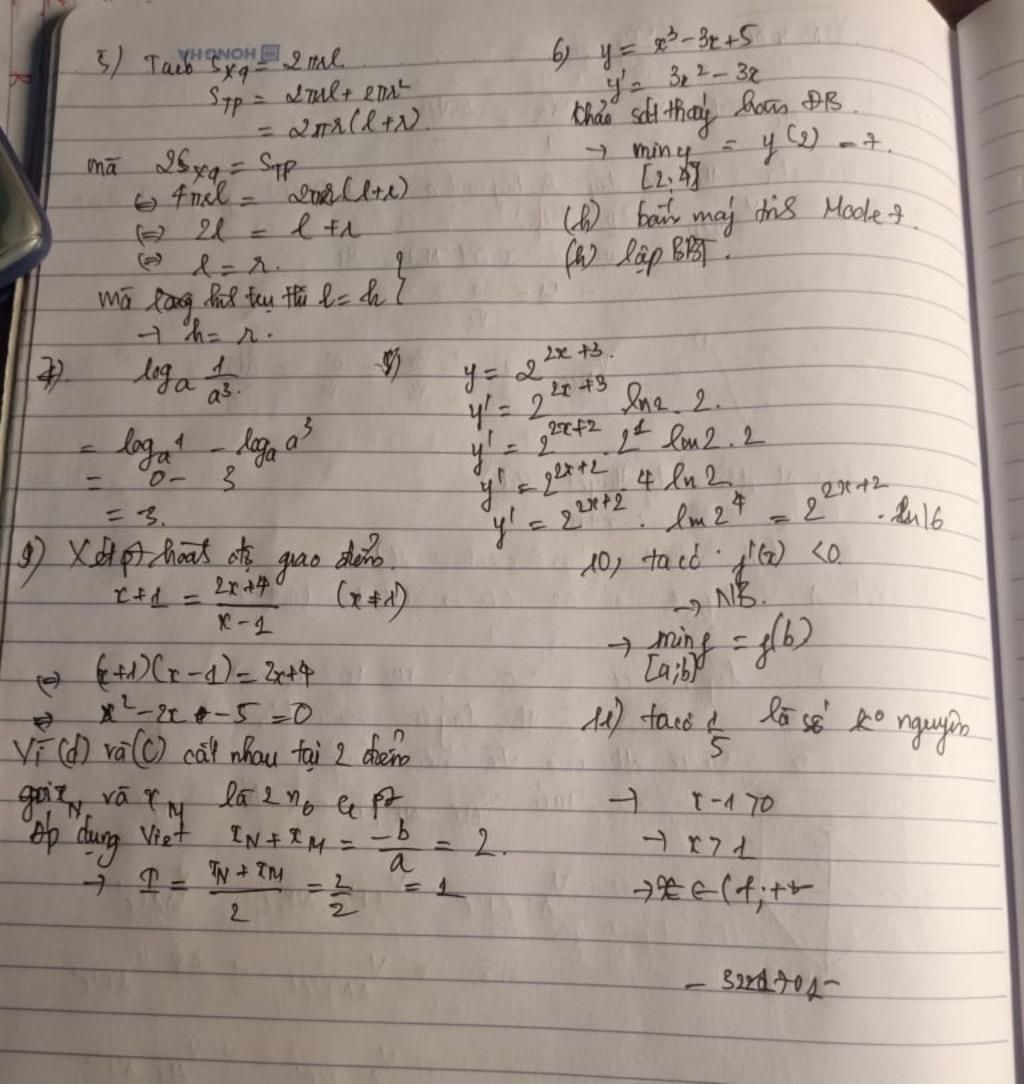 HONG HA
5) Ta có Sxq = 2πrl
STP = 2πrl + 2πr²
= 2πr(l+r)
mà 2Sxq = STP
⇔ 4πrl = 2πr(l+r)
⇔ 2l = l + r
⇔ l = r.
mà trong hình trụ thì l = h }
→ h = r.
6) y = x³ - 3x + 5
y' = 3x² - 3x
khảo sát thấy hàm ĐB
→ min y [2;4] = y(2) = 7.
(h) bấm máy Mode 7
(h) lập BBT.
7) logₐ 1/a³.
= logₐ1 - logₐa³
= 0 - 3
= 3.
8) y = 2^(2x+3).
y' = 2^(2x+3) ln2. 2.
y' = 2^(2x+2) . 2¹ ln2 . 2
y' = 2^(2x+2) . 4 ln 2
y' = 2^(2x+2) . ln2⁴ = 2^(2x+2) . ln16
9) Xét pt hoành độ giao điểm
x+1 = (2x+4)/(x-1) (x≠1)
⇔ (x+1)(x-1) = 2x+4
⇔ x² - 2x - 5 = 0
Vì (d) và (C) cắt nhau tại 2 điểm
gọi x_N và x_M là 2 n₀ pt
Áp dụng Viet x_N + x_M = -b/a = 2.
→ I = (x_N + x_M)/2 = 2/2 = 1
10, ta có f'(x) < 0
→ NB.
→ min f [a;b] = f(b)
11) ta có 1/5 là số ko nguyên
→ x-1>0
→ x>1